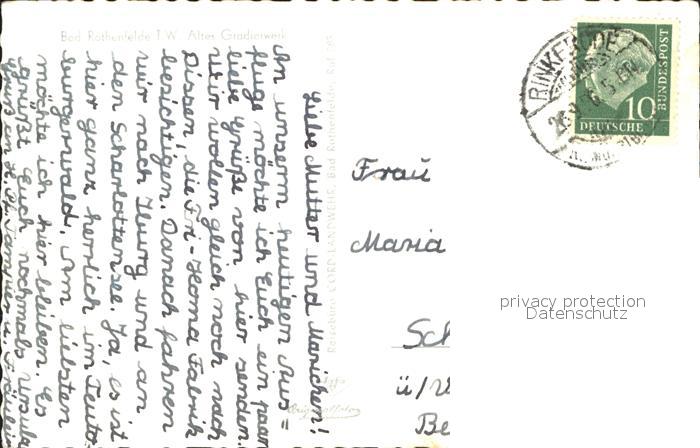 Bad Rothenfelde T.W. Altes Gradierwerk
Liebe Mutter und Mariechen!
An unserm heutigen Aus=
fluge möchte ich Euch ein paar
liebe Grüße von hier senden.
Wir wollen gleich noch nach
Dissen, die Fri-Homa Fabrik
besichtigen. Danach fahren
wir nach Iburg und an
den Scharlottensee. Ja, es ist
hier ganz herrlich im Teuto-
burgerwald, Am liebsten
möchte ich hier bleiben. Es
grüßt Euch nochmals Ursula
CORD LANDWEHR, Bad Rothenfelde, Ruf
Frau
Maria
Sch
ü/W
Be
RINKERODE
10
DEUTSCHE
BUNDESPOST
privacy protection
Datenschutz